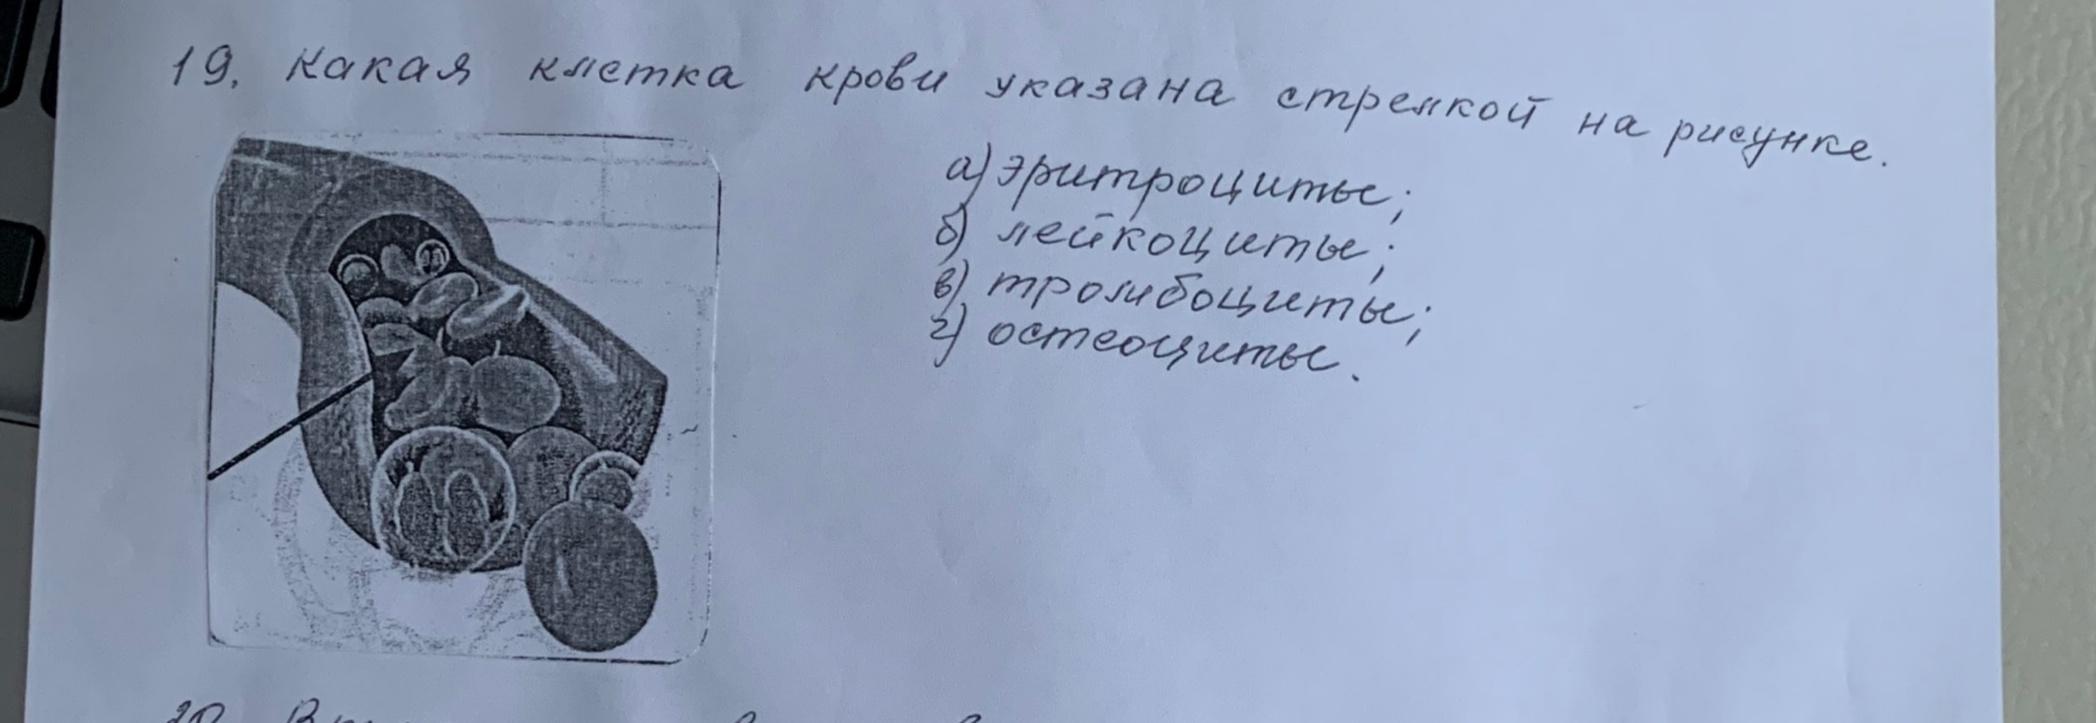 19. Какая клетка крови указана стрелкой на рисунке.
а) эритроциты;
б) лейкоциты;
в) тромбоциты;
г) остеоциты.